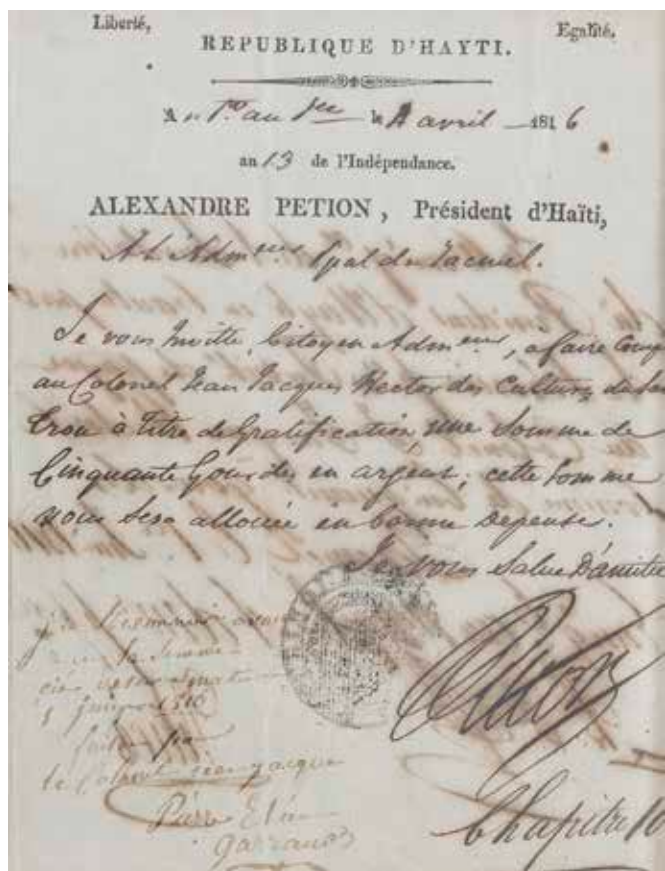 Liberté, Egalité.
REPUBLIQUE D'HAYTI.
Au P.au Pce le 4 avril 1816
an 13 de l'Indépendance.
ALEXANDRE PETION, Président d'Haïti,
A L'Admeur de Jacmel.
Je vous Invitte, Citoyen Admeur, a faire
au Colonel Jean Jacques Hector des Cultures du
Trou à titre de Gratification, une Somme de
Cinquante Gourdes en argent; cette Somme
vous Sera allouée en bonne depense.
Je vous Salue D'amitié
Petion
je Reconnais avoir
la Somme
fait par
le Colonel jean jacque
Pierre
Chapitre 10